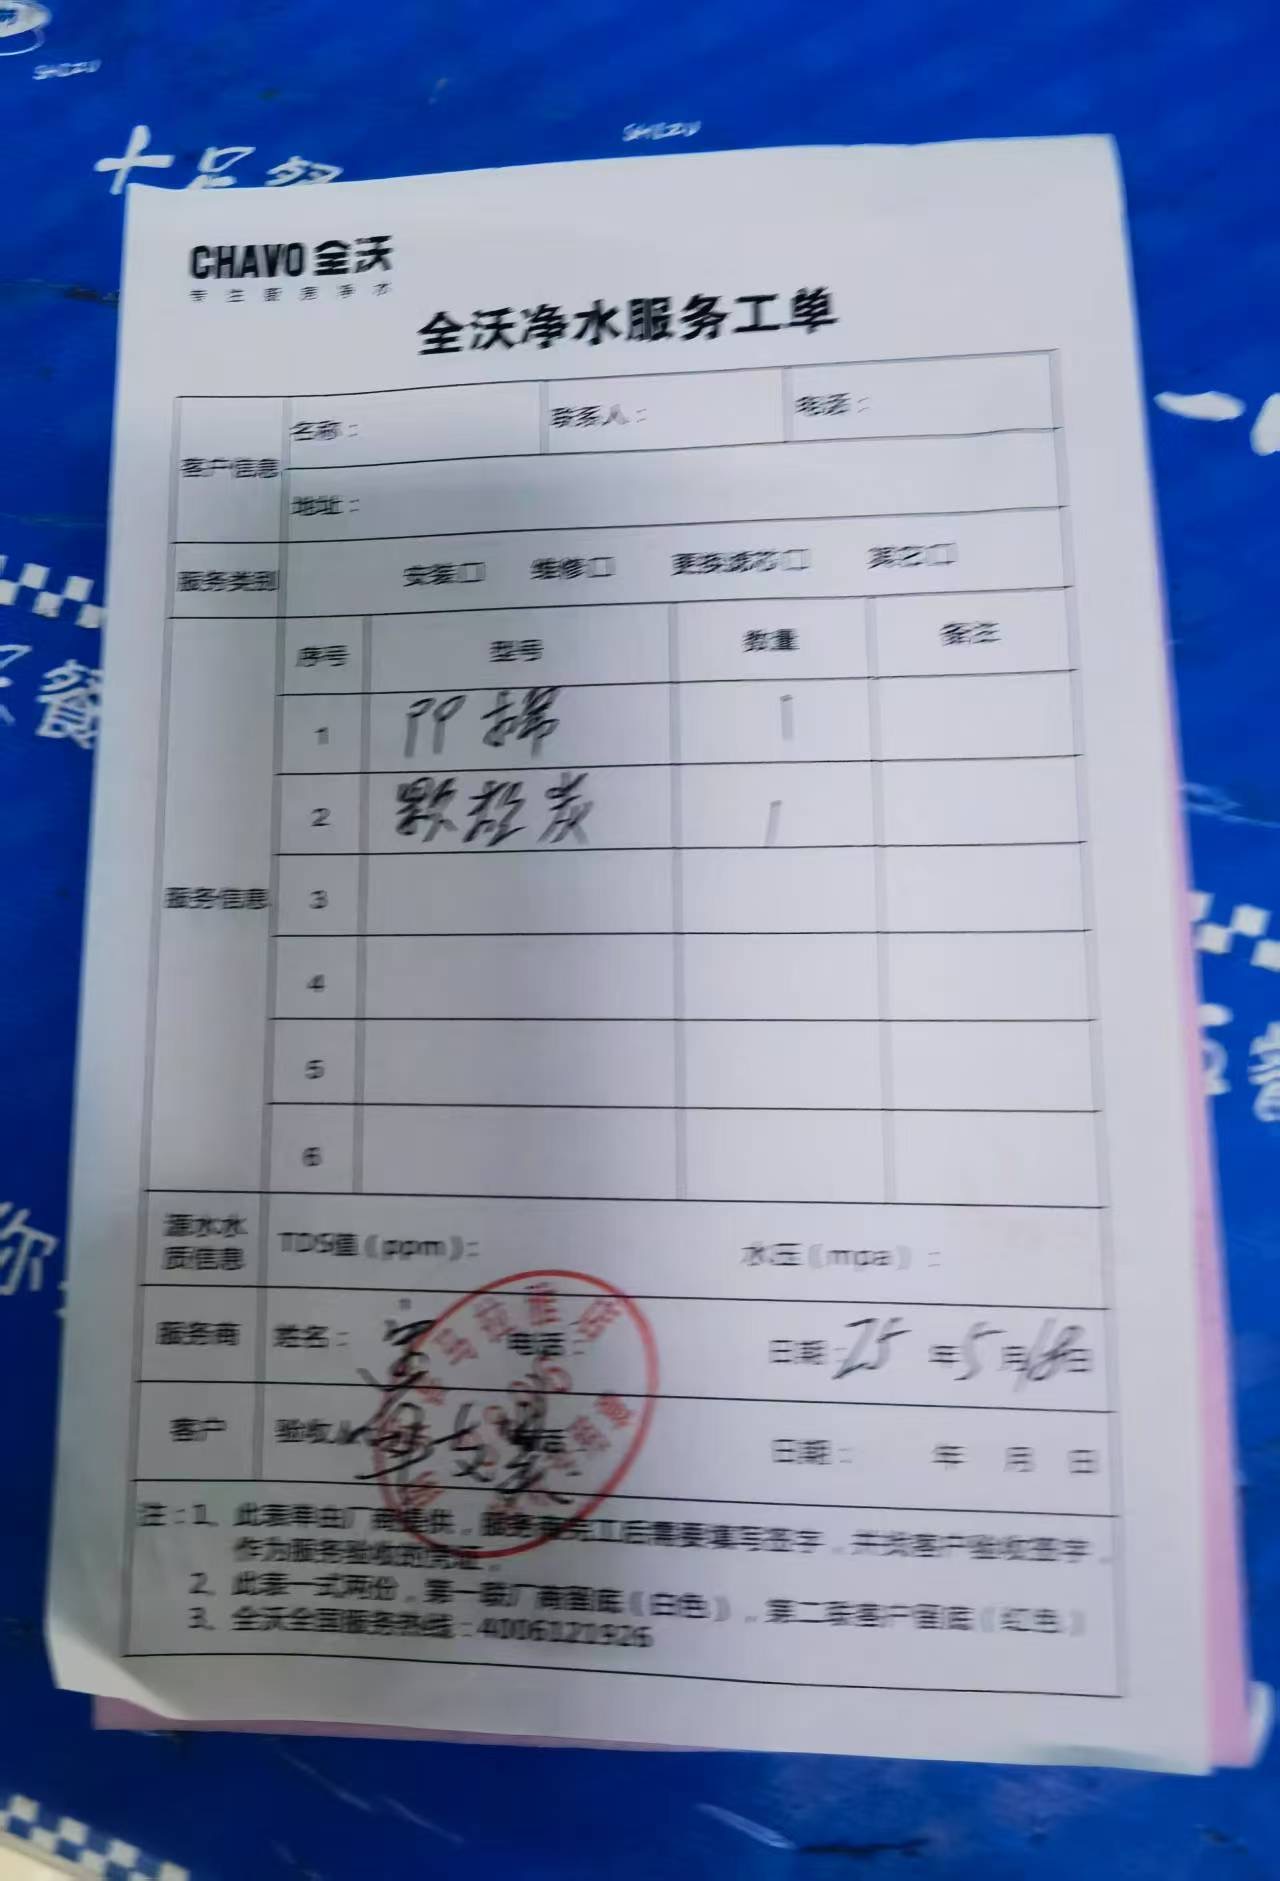 SHIZU
SHIZU
CHAVO 全沃
专注商用净水
全沃净水服务工单
客户信息 名称： 联系人： 电话：
地址：
服务类别 安装□ 维修□ 更换滤芯□ 其它□
服务信息 序号 型号 数量 备注
1 PP棉 1
2 颗粒炭 1
3
4
5
6
源水水质信息 TDS值（ppm）： 水压（mpa）：
服务商 姓名： 电话： 日期：25年5月18日
客户 验收人 电话： 日期： 年 月 日
注：1、此表单由厂商提供，服务商完工后需要填写签字，并找客户验收签字，
作为服务验收的凭证。
2、此表一式两份，第一联厂商留底（白色），第二联客户留底（红色）
3、全沃全国服务热线：4006121926